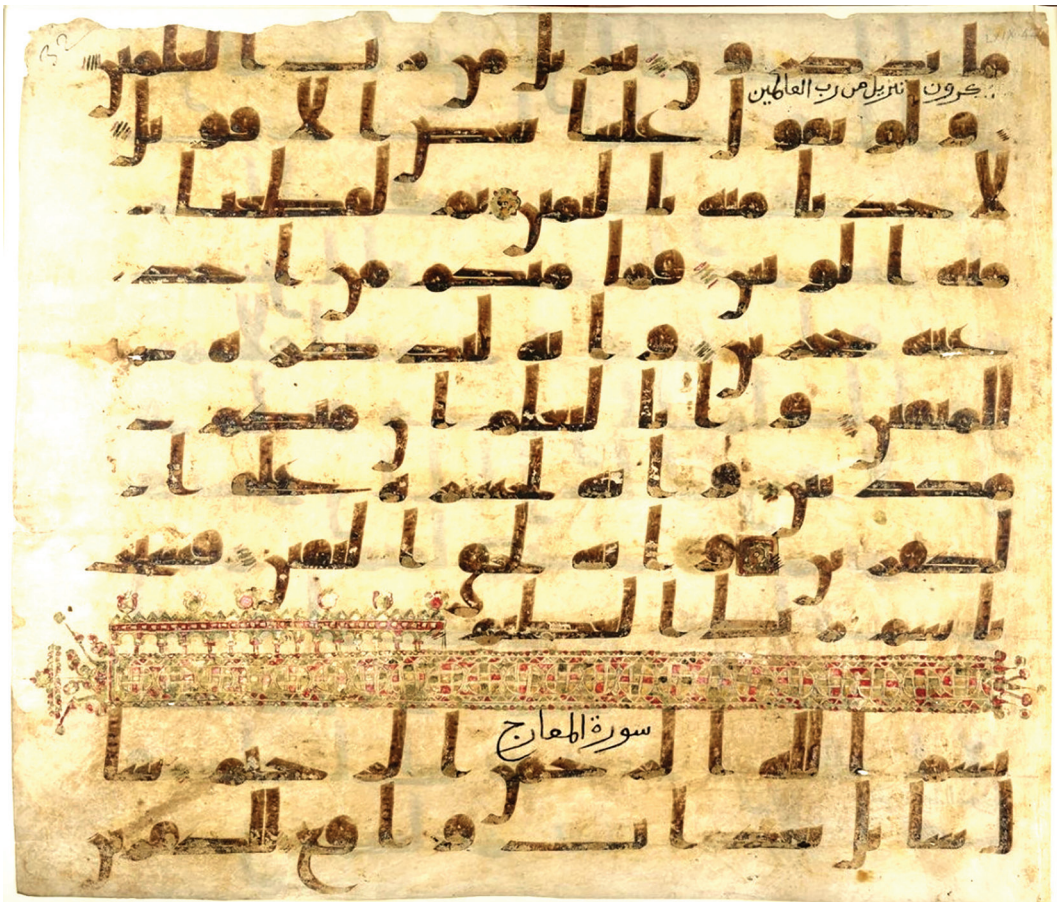 ما تذكرون تنزيل من رب العلمين
كرون تنزيل من رب العالمين
و لو تقول علينا بعض الا قويل
لا خذنا منه باليمين ثم لقطعنا
منه الوتين فما منكم من احد
عنه حجزين و انه لتذكرة
للمتقين و انا لنعلم ان منكم
مكذبين و انه لحسرة على ا
لكفرين و انه لحق اليقين فسبح
باسم ربك العظيم
سورة المعارج
بسم الله الرحمن الرحيم سا
ل سائل بعذاب واقع للكفرين